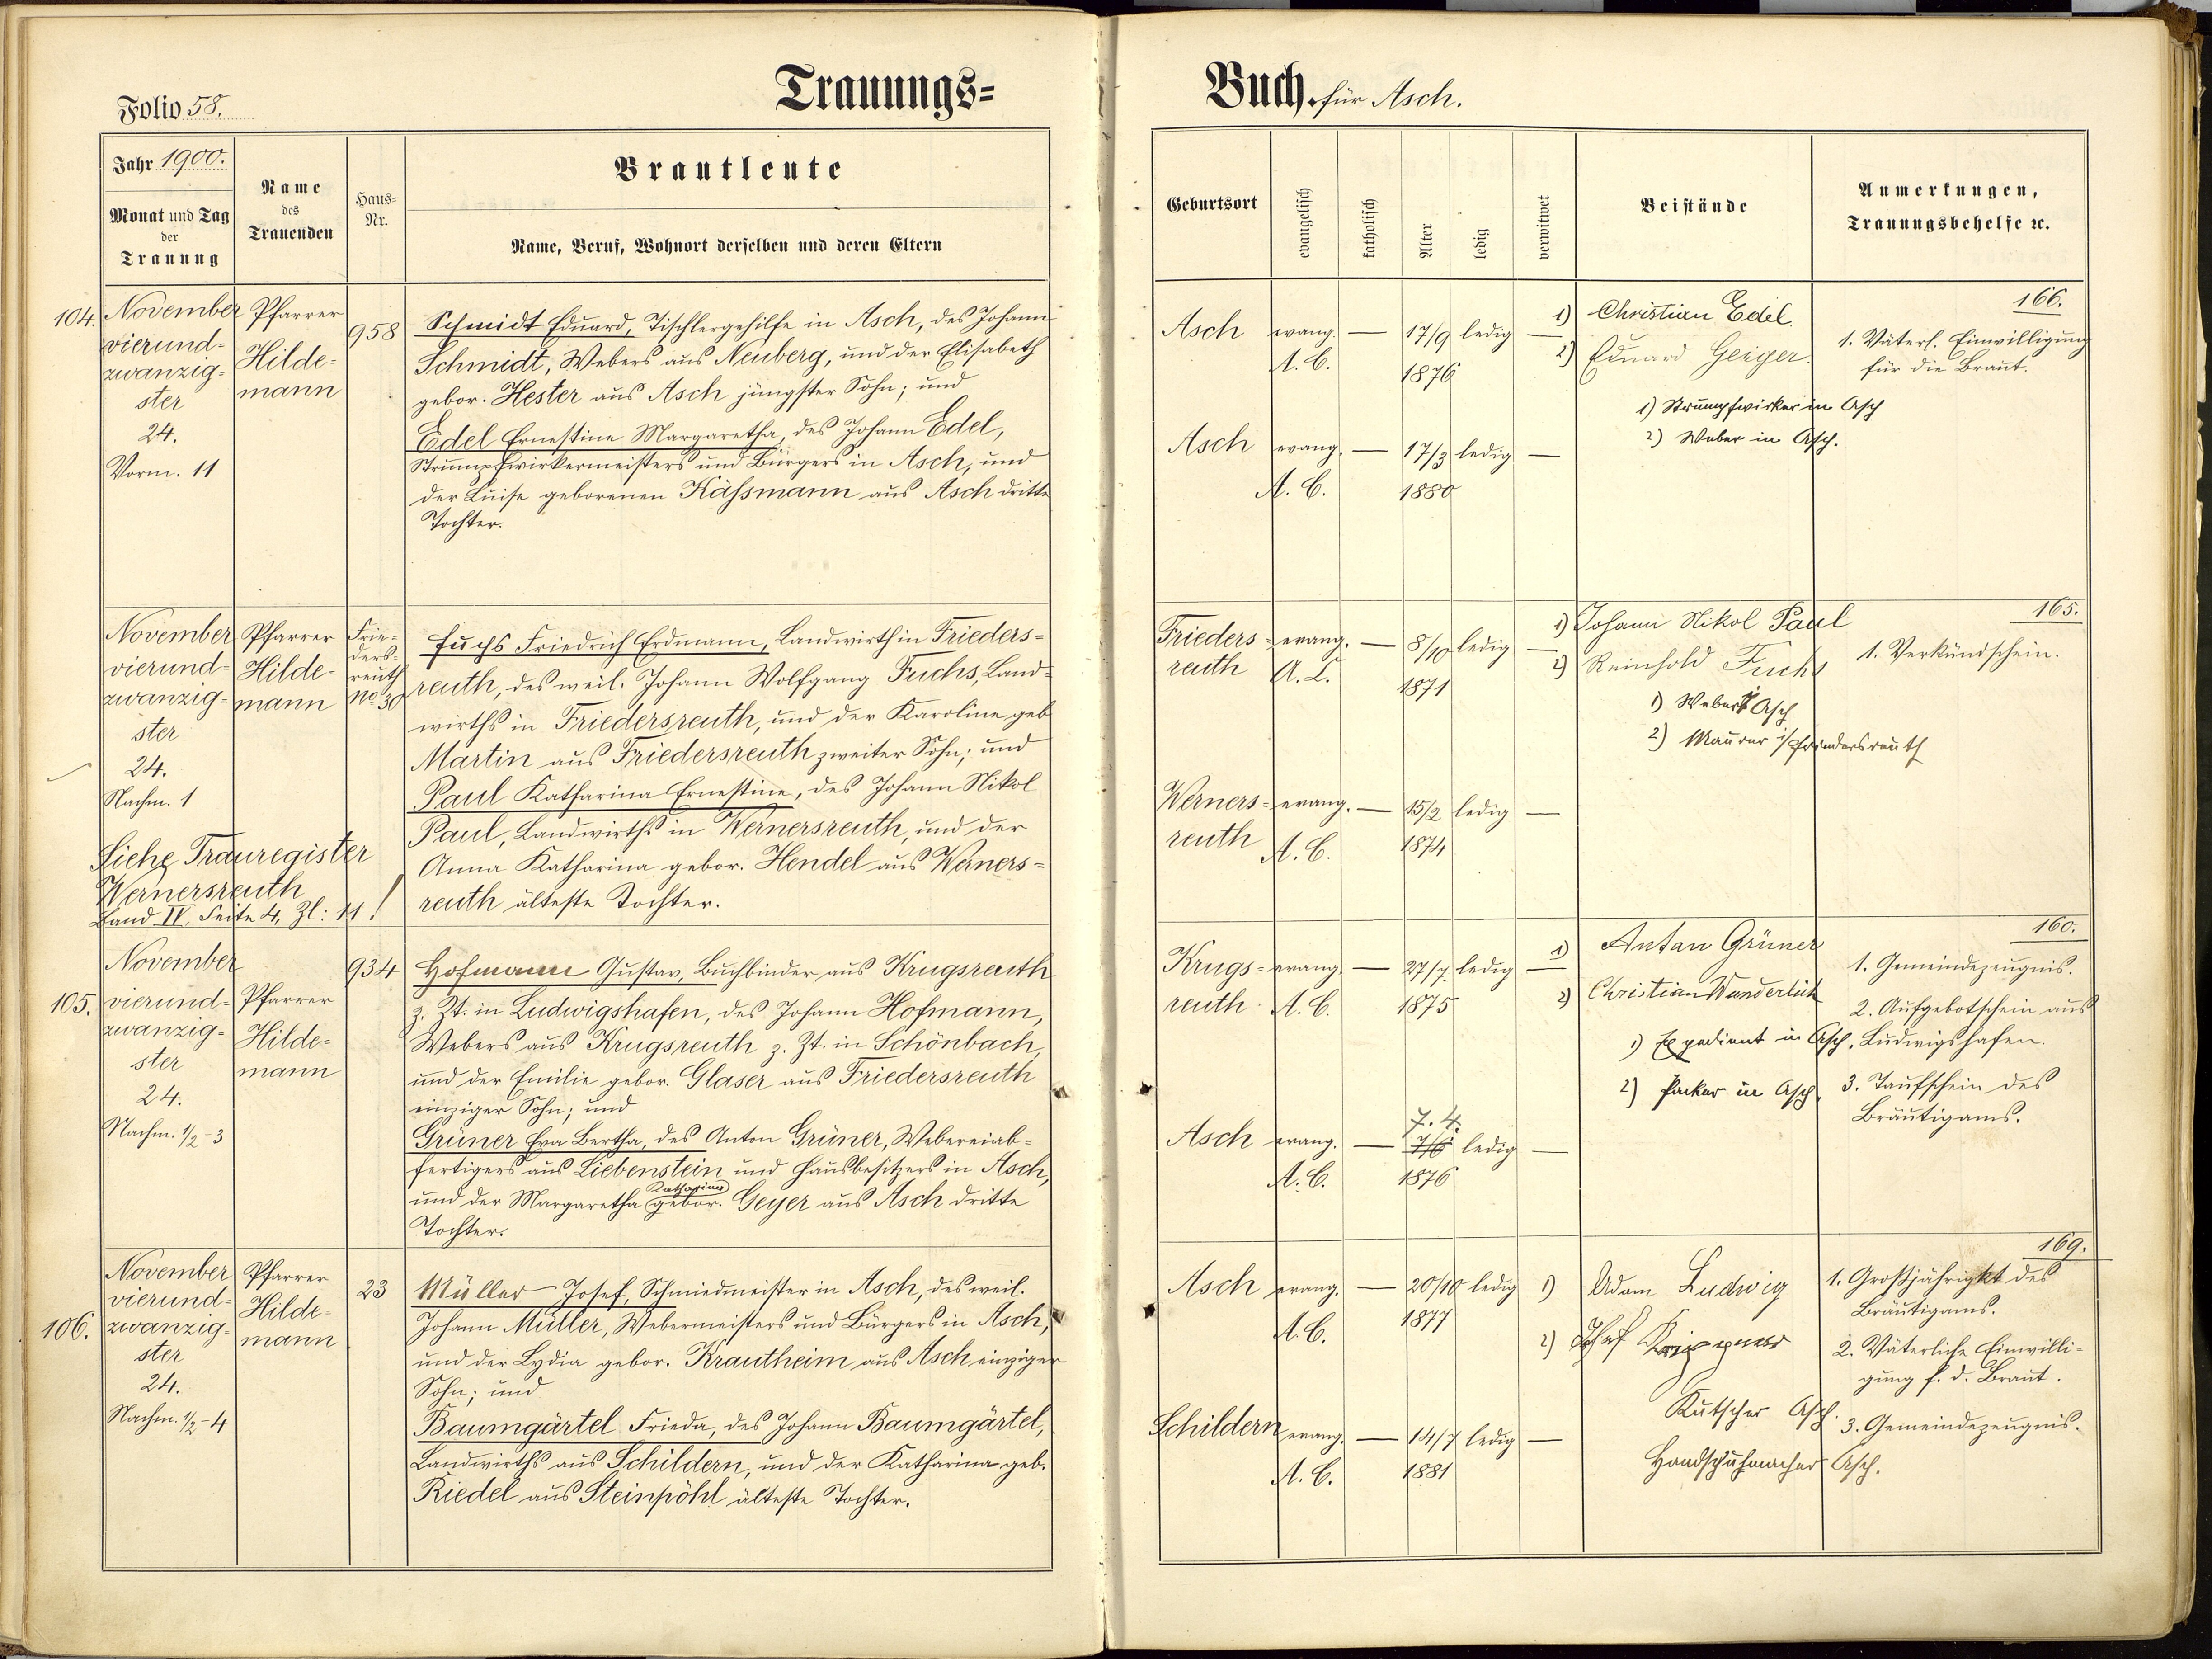 Folio 58.
Trauungs=
Jahr 1900.
Monat und Tag
der
Trauung
Name
des
Trauenden
Haus-
Nr.
Brautleute
Name, Beruf, Wohnort derselben und deren Eltern
104.
November
vierund-
zwanzig-
ster
24.
Vorm. 11
Pfarrer
Hilde-
mann
958
Schmidt Eduard, Tischlergehilfe in Asch, des Johann
Schmidt, Webers aus Neuberg, und der Elisabeth
gebor. Hester aus Asch jüngster Sohn; und
Edel Ernestine Margaretha, des Johann Edel,
Strumpfwirkermeisters und Bürgers in Asch, und
der Luise geborenen Käßmann aus Asch dritte
Tochter.
November
vierund-
zwanzig-
ster
24.
Nachm. 1
Pfarrer
Hilde-
mann
Frie-
ders-
reuth
No 30
Fuchs Friedrich Erdmann, Landwirth in Frieders=
reuth, des weil. Johann Wolfgang Fuchs, Land=
wirths in Friedersreuth, und der Karoline geb
Martin aus Friedersreuth zweiter Sohn; und
Paul Katharina Ernestine, des Johann Nikol
Paul, Landwirths in Wernersreuth, und der
Anna Katharina gebor. Hendel aus Werners=
reuth älteste Tochter.
Siehe Trauregister
Wernersreuth
Band IV. Seite 4, Zl: 11!
105.
November
vierund-
zwanzig-
ster
24.
Nachm. 1/2-3
Pfarrer
Hilde=
mann
934
Hofmann Gustav, Buchbinder aus Krugsreuth
z. Zt. in Ludwigshafen, des Johann Hofmann,
Webers aus Krugsreuth z. Zt. in Schönbach,
und der Emilie gebor. Glaser aus Friedersreuth
einziger Sohn; und
Grüner Eva Bertha, des Anton Grüner, Webereiab=
fertigers aus Liebenstein und Hausbesitzers in Asch,
Katharina
und der Margaretha gebor. Geyer aus Asch dritte
Tochter.
106.
November
vierund-
zwanzig-
ster
24.
Nachm. 1/2-4
Pfarrer
Hilde-
mann
23
Müller Josef, Schmiedmeister in Asch, des weil.
Johann Müller, Webermeisters und Bürgers in Asch,
und der Lydia gebor. Krautheim aus Asch einziger
Sohn; und
Baumgärtel Frieda, des Johann Baumgärtel,
Landwirths aus Schildern, und der Katharina geb.
Riedel aus Steinpöhl älteste Tochter.
Buch für Asch.
Geburtsort
evangelisch
katholisch
Alter
ledig
verwitwet
Beistände
Anmerkungen,
Trauungsbehelfe ꝛc.
Asch evang. — 17/9 ledig —
A. C. 1876
Asch evang. — 17/3 ledig —
A. C. 1880
1) Christian Edel
2) Eduard Geiger.
1) Strumpfwirker in Asch
2) Weber in Asch.
166.
1. Väterl. Einwilligung
für die Braut.
Frieders= evang. — 8/10 ledig —
reuth A. C. 1871
Werners= evang. — 15/2 ledig —
reuth A. C. 1874
1) Johann Nikol Paul
2) Reinhold Fuchs
1) Weber i/ Asch
2) Maurer i/ Friedersreuth
165.
1. Verkündschein.
Krugs= evang. — 27/7 ledig —
reuth A. C. 1875
7. 4.
Asch evang. — 7/6 ledig —
A. C. 1876
1) Anton Grüner
2) Christian Wunderlich
1) Expedient in Asch.
2) Packer in Asch.
160.
1. Gemeindezeugnis.
2. Aufgebotschein aus
Ludwigshafen.
3. Taufschein des
Bräutigams.
Asch evang. — 20/10 ledig
A. C. 1877
Schildern evang. — 14/7 ledig —
A. C. 1881
1) Adam Ludwig
2) Josef
Kutscher Asch.
Handschuhmacher Asch.
169.
1. Großjährigkt des
Bräutigams.
2. Väterliche Einwilli=
gung f. d. Braut.
3. Gemeindezeugnis.